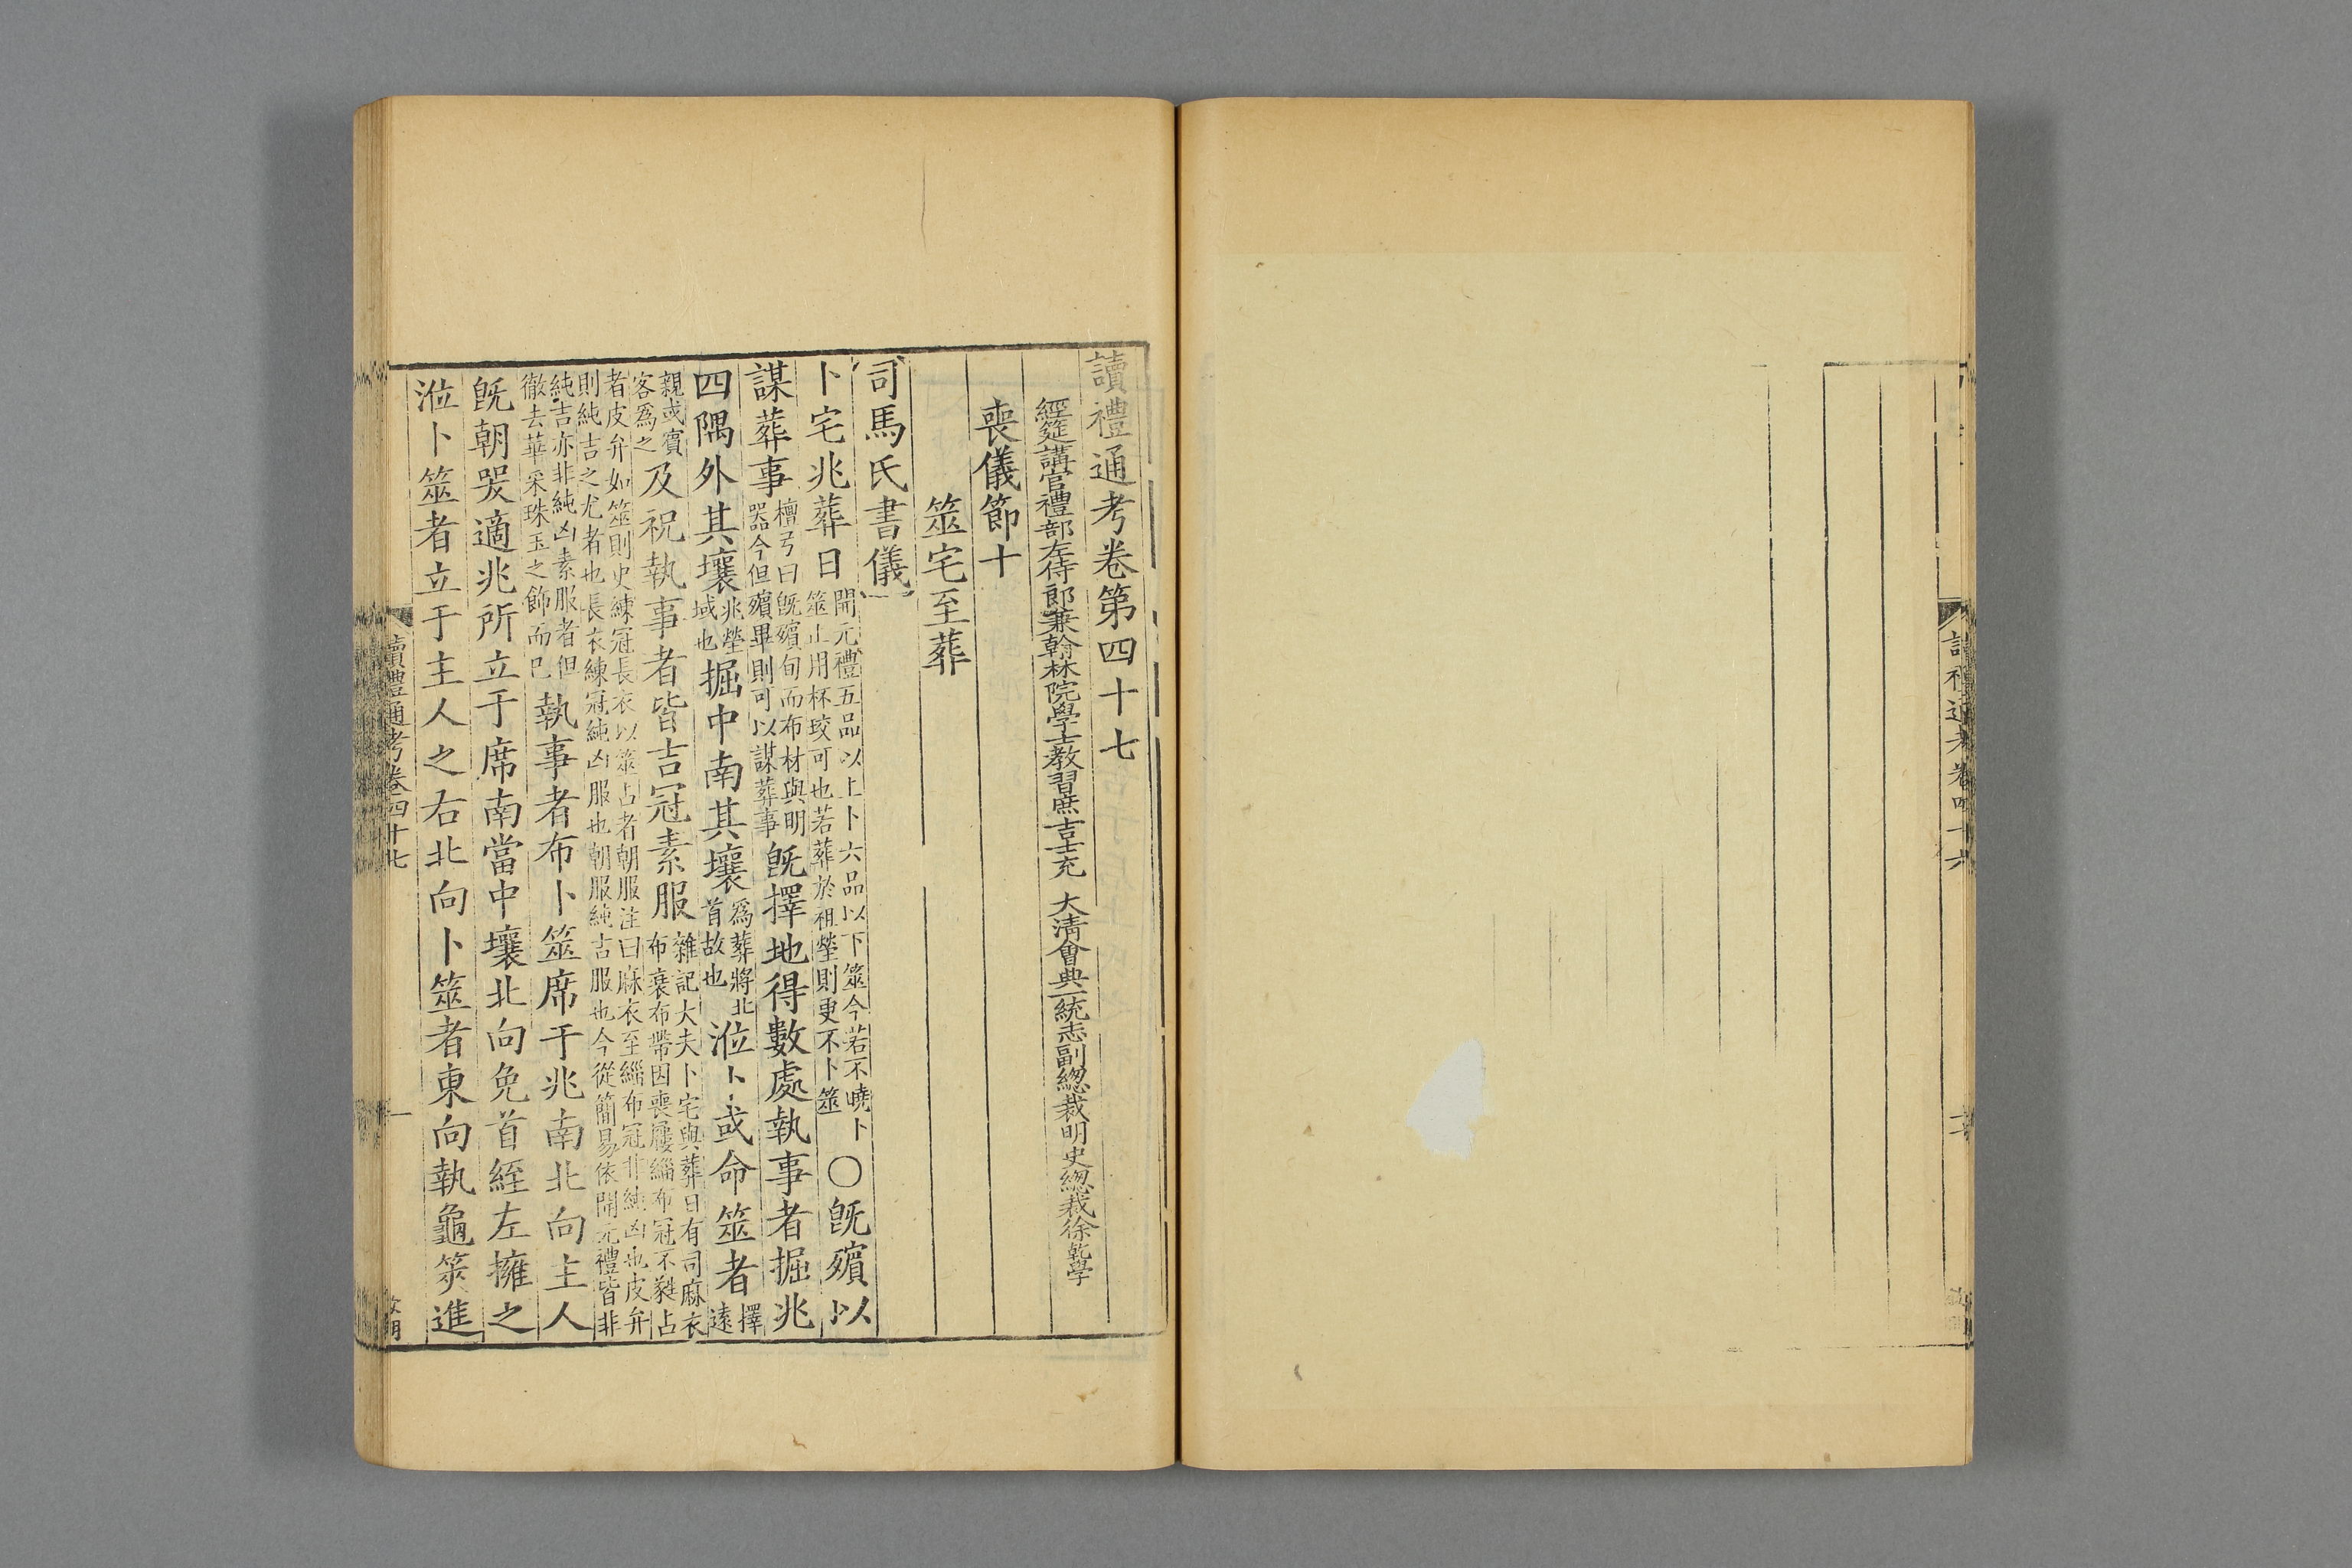 讀禮通考卷四十六
讀禮通考卷第四十七
經筵講官禮部左侍郎兼翰林院學士教習庶吉士充　大清會典一統志副總裁明史總裁徐乾學
喪儀節十
筮宅至葬
司馬氏書儀
卜宅兆葬日開元禮五品以上卜六品以下筮今若不曉卜筮止用杯珓可也若葬於祖塋則更不卜筮○旣殯以
謀葬事檀弓曰旣殯旬而布材與明器今但殯畢則可以謀葬事旣擇地得數處執事者掘兆
四隅外其壤兆塋域也掘中南其壤爲葬將北首故也涖卜或命筮者擇遠
親或賓客爲之及祝執事者皆吉冠素服雜記大夫卜宅與葬日有司麻衣布衰布帶因喪屨緇布冠不蕤占
者皮弁如筮則史練冠長衣以筮占者朝服注曰麻衣至緇布冠非純凶也皮弁則純吉之尤者也長衣練冠純凶服也朝服純吉服也今從簡易依開元禮皆非
純吉亦非純凶素服者但徹去華采珠玉之飾而已執事者布卜筮席于兆南北向主人
旣朝哭適兆所立于席南當中壤北向免首絰左擁之
涖卜筮者立于主人之右北向卜筮者東向執龜筴進
讀禮通考卷四十七
一